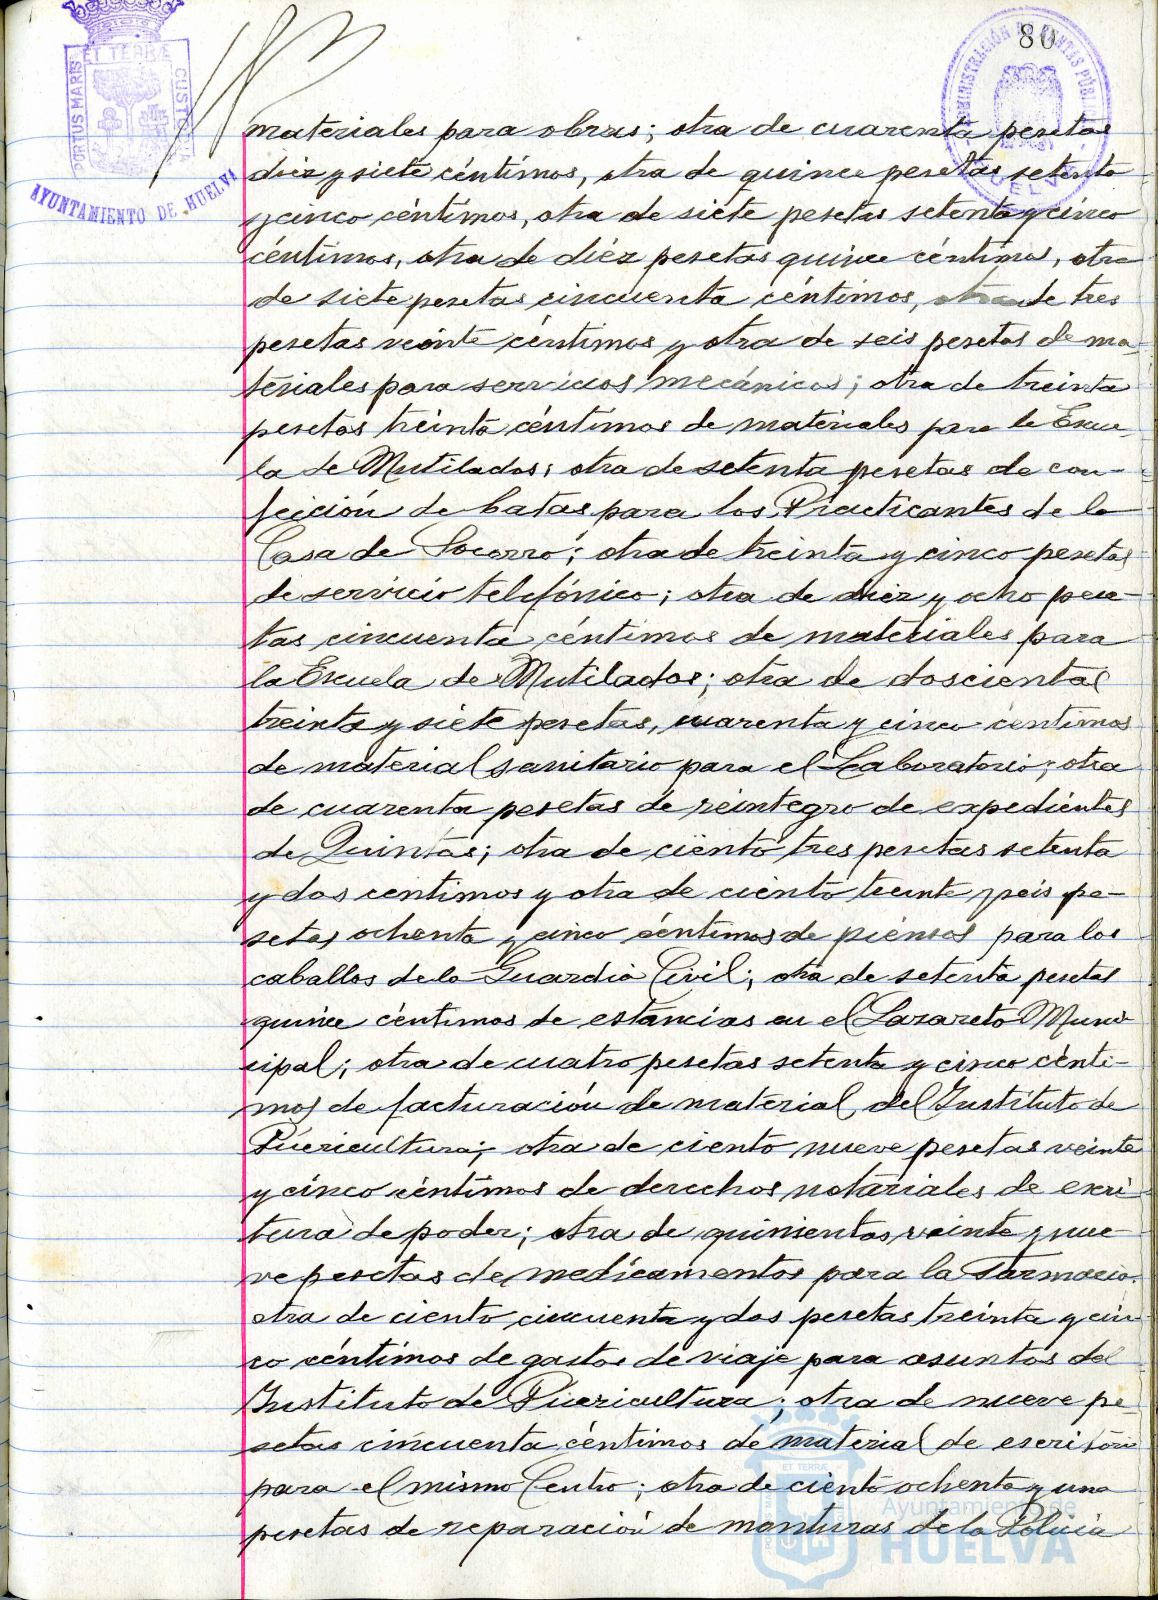 80
PORTUS MARIS ET TERRÆ CUSTODIA
AYUNTAMIENTO DE HUELVA
ADMINISTRACIÓN DE RENTAS PÚBLICAS
HUELVA
materiales para obras; otra de cuarenta pesetas
diez y siete céntimos, otra de quince pesetas setenta
y cinco céntimos, otra de siete pesetas setenta y cinco
céntimos, otra de diéz pesetas quince céntimos, otra
de siete pesetas cincuenta céntimos, otra de tres
pesetas veinte céntimos y otra de seis pesetas de ma-
teriales para servicios mecánicos; otra de treinta
pesetas treinta céntimos de materiales para la Escue-
la de Mutilados; otra de setenta pesetas de con-
feición de batas para los Practicantes de la
Casa de Socorro; otra de treinta y cinco pesetas
de servicio telefónico; otra de diez y ocho pese-
tas cincuenta céntimos de materiales para
la Escuela de Mutilados; otra de doscientas
treinta y siete pesetas, cuarenta y cinco centimos
de material sanitario para el Laboratorio; otra
de cuarenta pesetas de reintegro de expedientes
de Quintas; otra de ciento tres pesetas setenta
y dos centimos y otra de ciento treinta y seis pe-
setas ochenta y cinco céntimos de piensos para los
caballos de la Guardia Civil; otra de setenta pesetas
quince céntimos de estancias en el Lazareto Muni-
cipal; otra de cuatro pesetas setenta y cinco cénti-
mos de facturación de material del Instituto de
Puericultura; otra de ciento nueve pesetas veinte
y cinco céntimos de derechos notariales de escri-
tura de poder; otra de quinientas veinte y nue-
ve pesetas de medicamentos para la Farmacia;
otra de ciento cincuenta y dos pesetas treinta y cin-
co céntimos de gastos de viaje para asuntos del
Instituto de Puericultura; otra de nueve pe-
setas cincuenta céntimos de material de escritorio
para el mismo Centro; otra de ciento ochenta y una
pesetas de reparación de monturas de la Policia
Ayuntamiento de
HUELVA